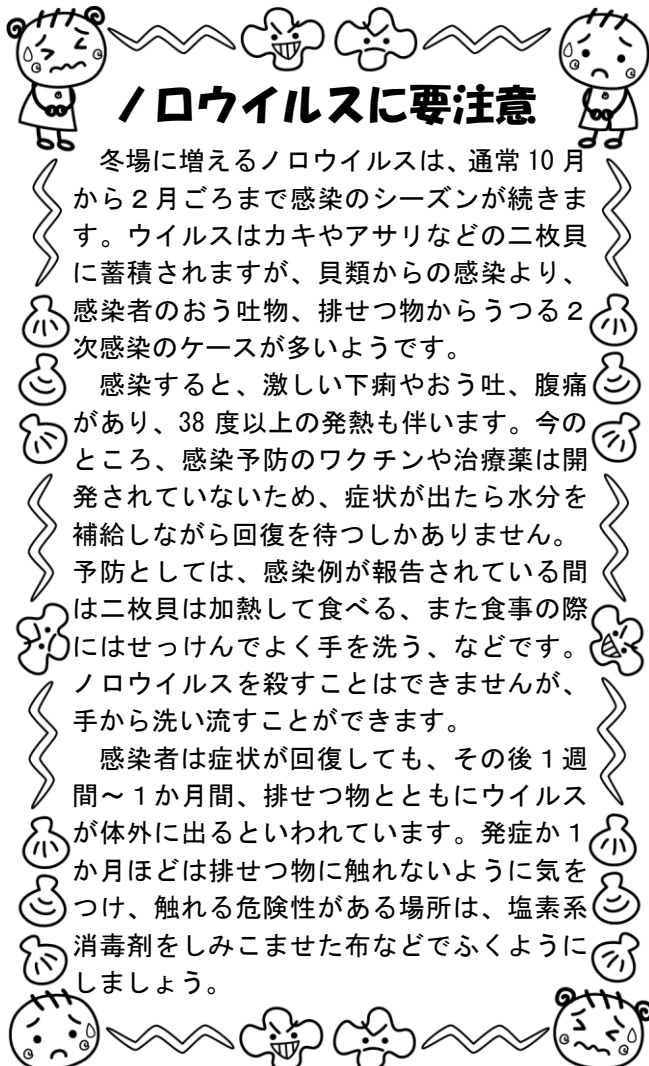 ノロウイルスに要注意
　冬場に増えるノロウイルスは、通常 10 月
から２月ごろまで感染のシーズンが続きま
す。ウイルスはカキやアサリなどの二枚貝
に蓄積されますが、貝類からの感染より、
感染者のおう吐物、排せつ物からうつる２
次感染のケースが多いようです。
　感染すると、激しい下痢やおう吐、腹痛
があり、38 度以上の発熱も伴います。今の
ところ、感染予防のワクチンや治療薬は開
発されていないため、症状が出たら水分を
補給しながら回復を待つしかありません。
予防としては、感染例が報告されている間
は二枚貝は加熱して食べる、また食事の際
にはせっけんでよく手を洗う、などです。
ノロウイルスを殺すことはできませんが、
手から洗い流すことができます。
　感染者は症状が回復しても、その後１週
間～１か月間、排せつ物とともにウイルス
が体外に出るといわれています。発症か１
か月ほどは排せつ物に触れないように気を
つけ、触れる危険性がある場所は、塩素系
消毒剤をしみこませた布などでふくように
しましょう。